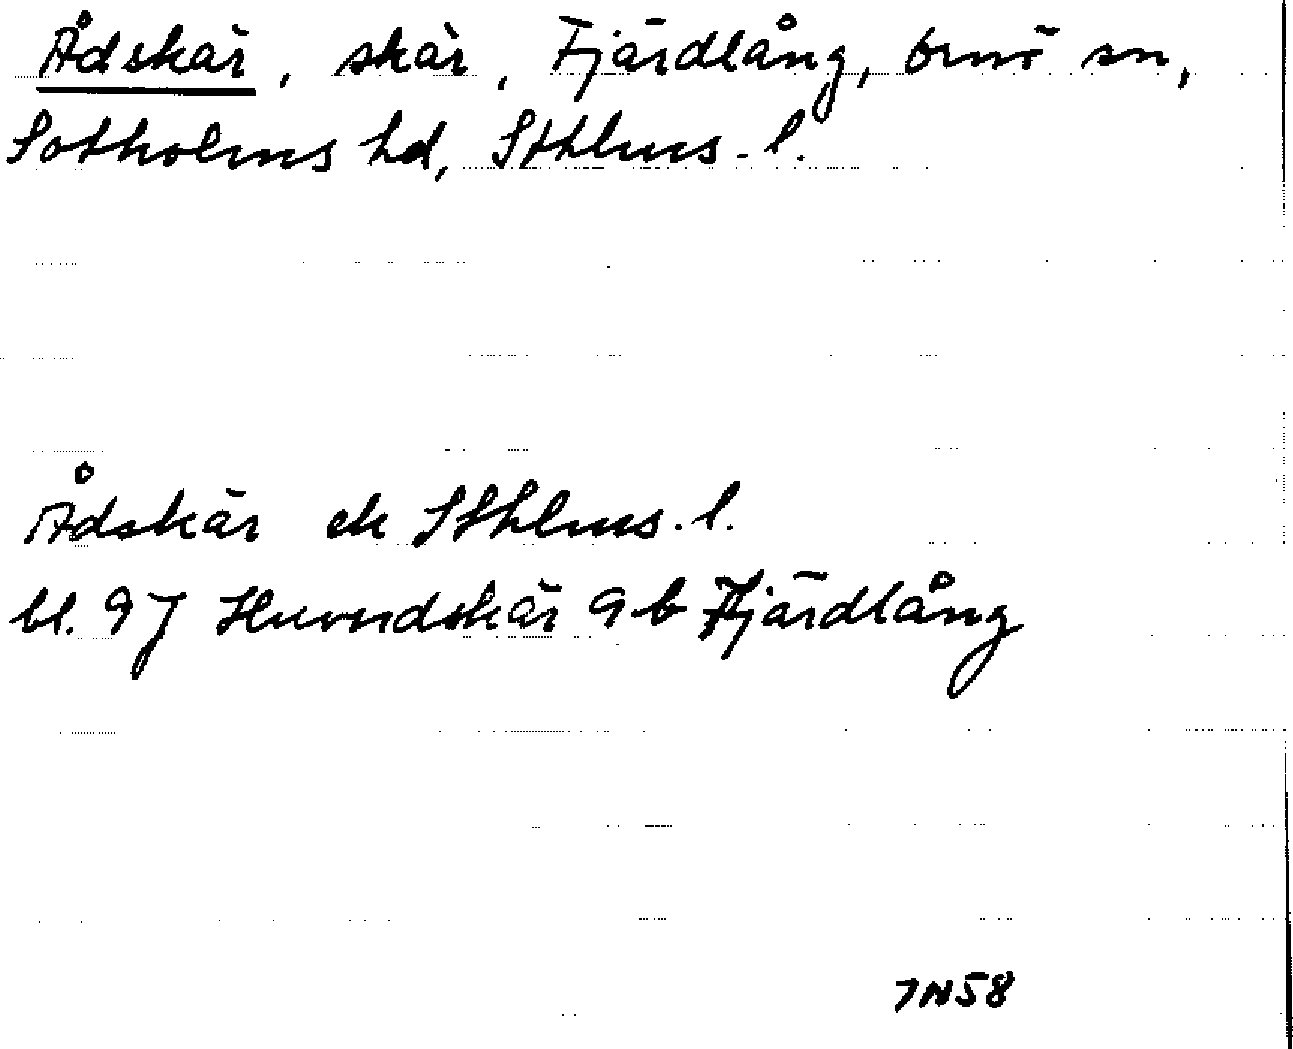 Ådskär, skär, Fjärdlång, Ornö sn,
Sotholms hd, Sthlms. l.
Ådskär ek Sthlms. l.
bl. 97 Huvudskär 9 b Fjärdlång
7N58